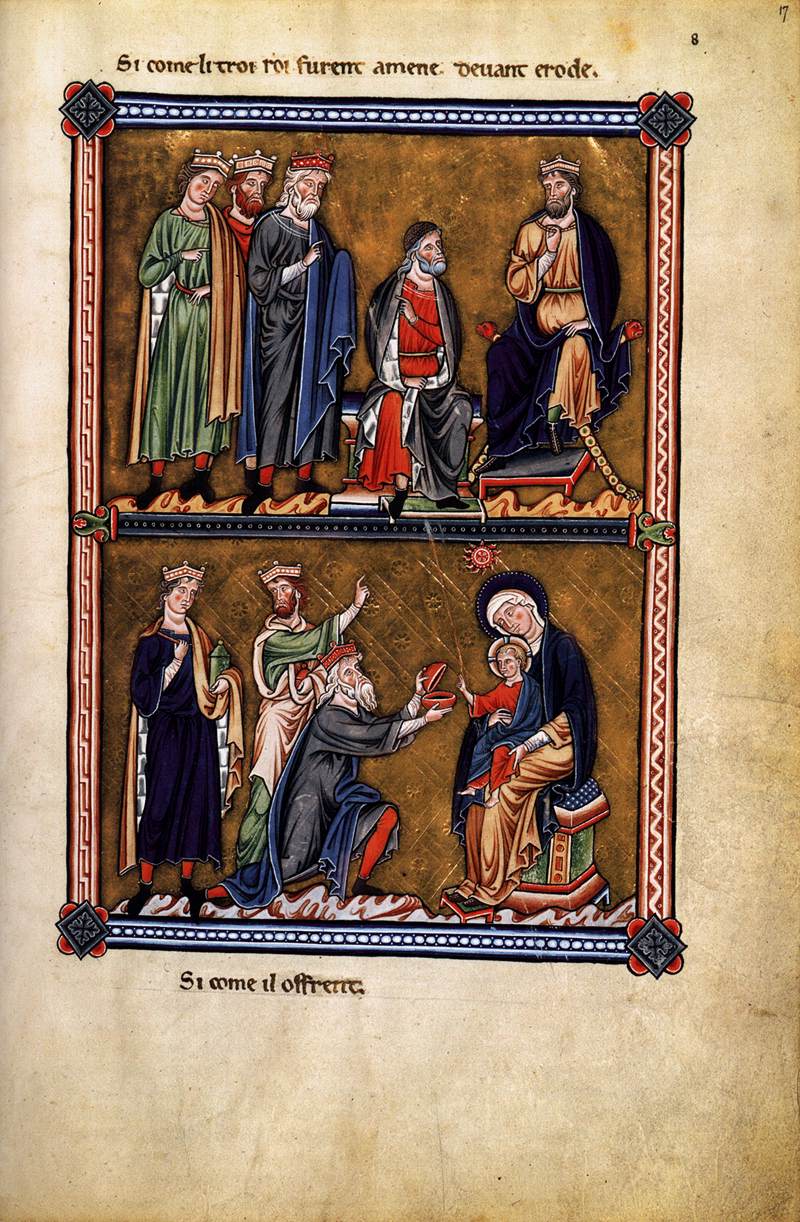 17
8
Si come li troi roi furent amene devant erode.
Si come il offrent.